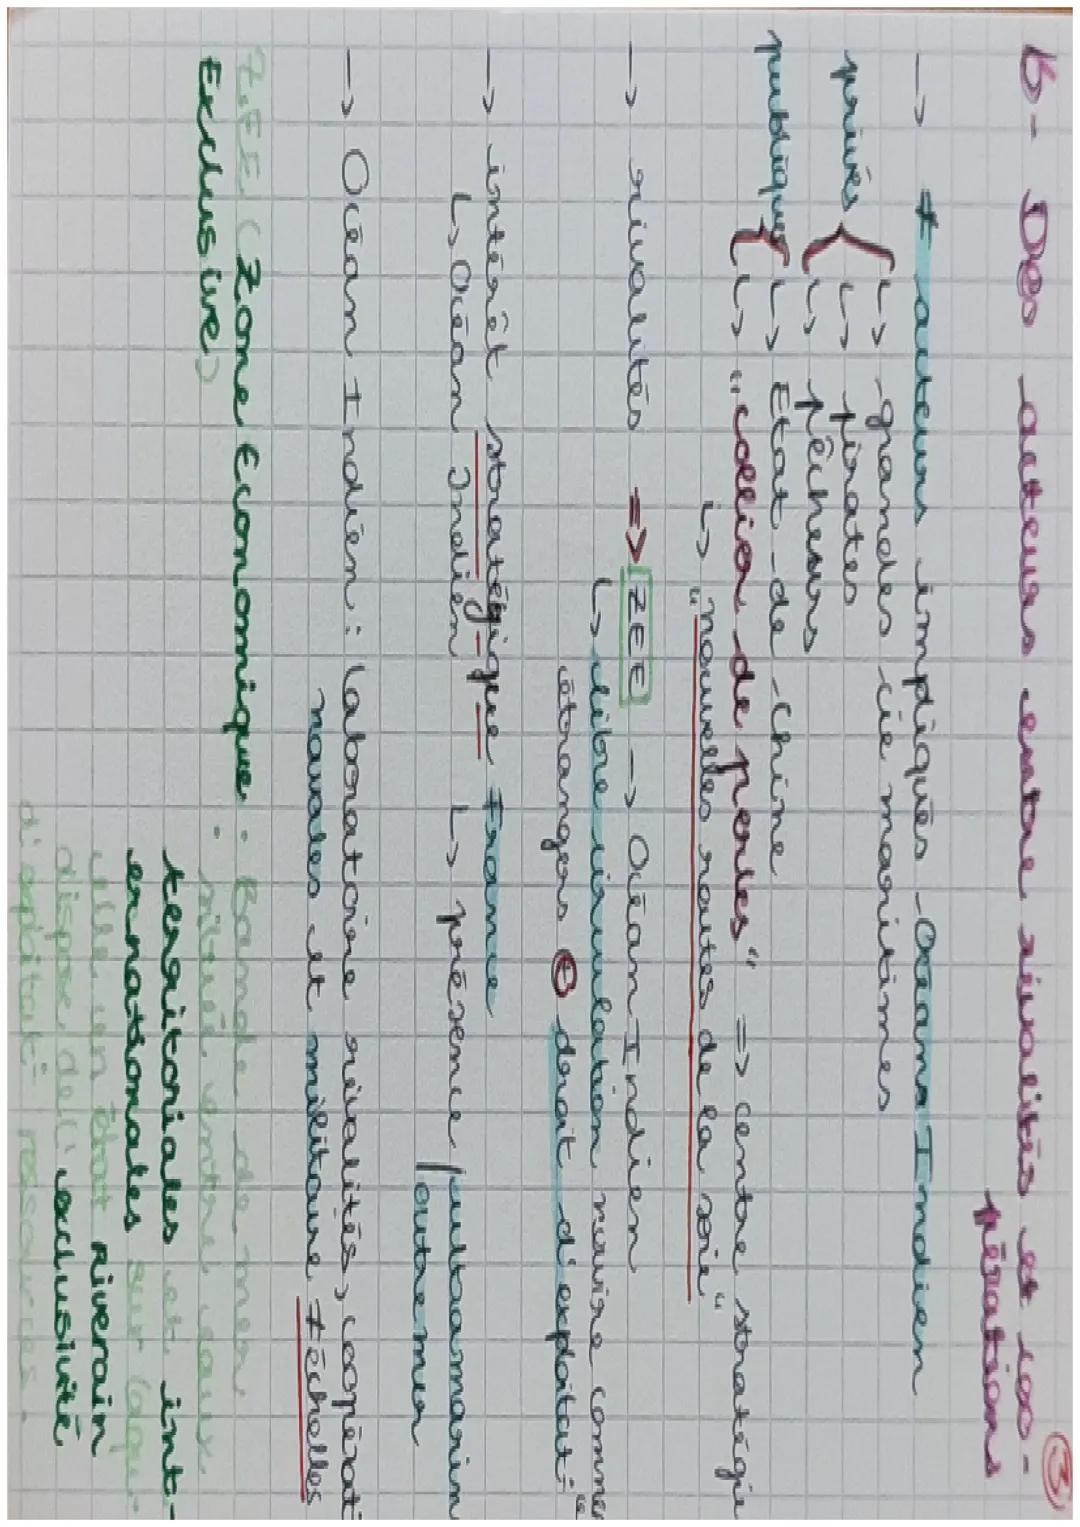 ③
B- Des acteurs entre rivalités et coo-
pérations
→ ≠ acteurs impliqués Océan Indien
↳ grandes cie maritimes
privés { ↳ pirates
↳ pêcheurs
publiques { ↳ Etat de Chine
↳ "collier de perles" => centre stratégie
↳ "nouvelles routes de la soie"
→ rivalités => ZEE → Océan Indien
↳ libre circulation navire comme
étrangers ⊕ droit d'exploitat°
→ intérêt stratégique France
↳ Océan Indien ↳ présence / ultramarin
/ outre mer
→ Océan Indien : laboratoire rivalités, coopérat°
navales et militaire ≠ échelles
Z.E.E. (Zone Economique : Bande de mer
Exclusive) située entre eaux
territoriales et int-
ernationales sur laqu-
elle un état riverain
dispose de l'exclusivité
d'exploitat° ressources.